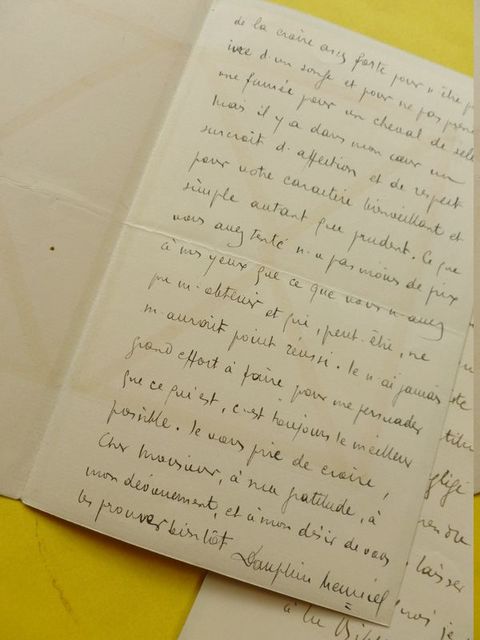 de la croire assez forte pour n'être p
ivre d'un songe et pour ne pas pren
une fumée pour un cheval de selle
Mais il y a dans mon cœur un
surcroît d'affection et de respect
pour votre caractère bienveillant et
simple autant que prudent. Ce que
vous avez tenté n'a pas moins de prix
à mes yeux que ce que vous n'avez
pu m'obtenir et qui, peut-être, ne
m'auroit point réussi. Je n'ai jamais
grand effort à faire pour me persuader
que ce qui est, c'est toujours le meilleur
possible. Je vous prie de croire,
Cher Monsieur, à ma gratitude, à
mon dévouement, et à mon désir de vous
les prouver bientôt
Dauphin Meunier
laisser